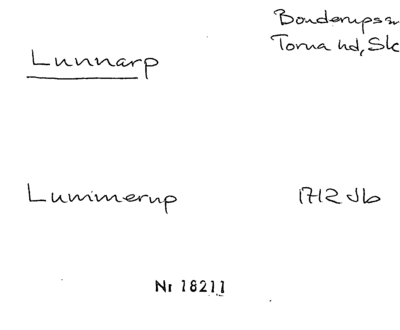 Bonderups sn
Torna hd, Sk
Lunnarp
Lummerup 1712 Jb
Nr 18211